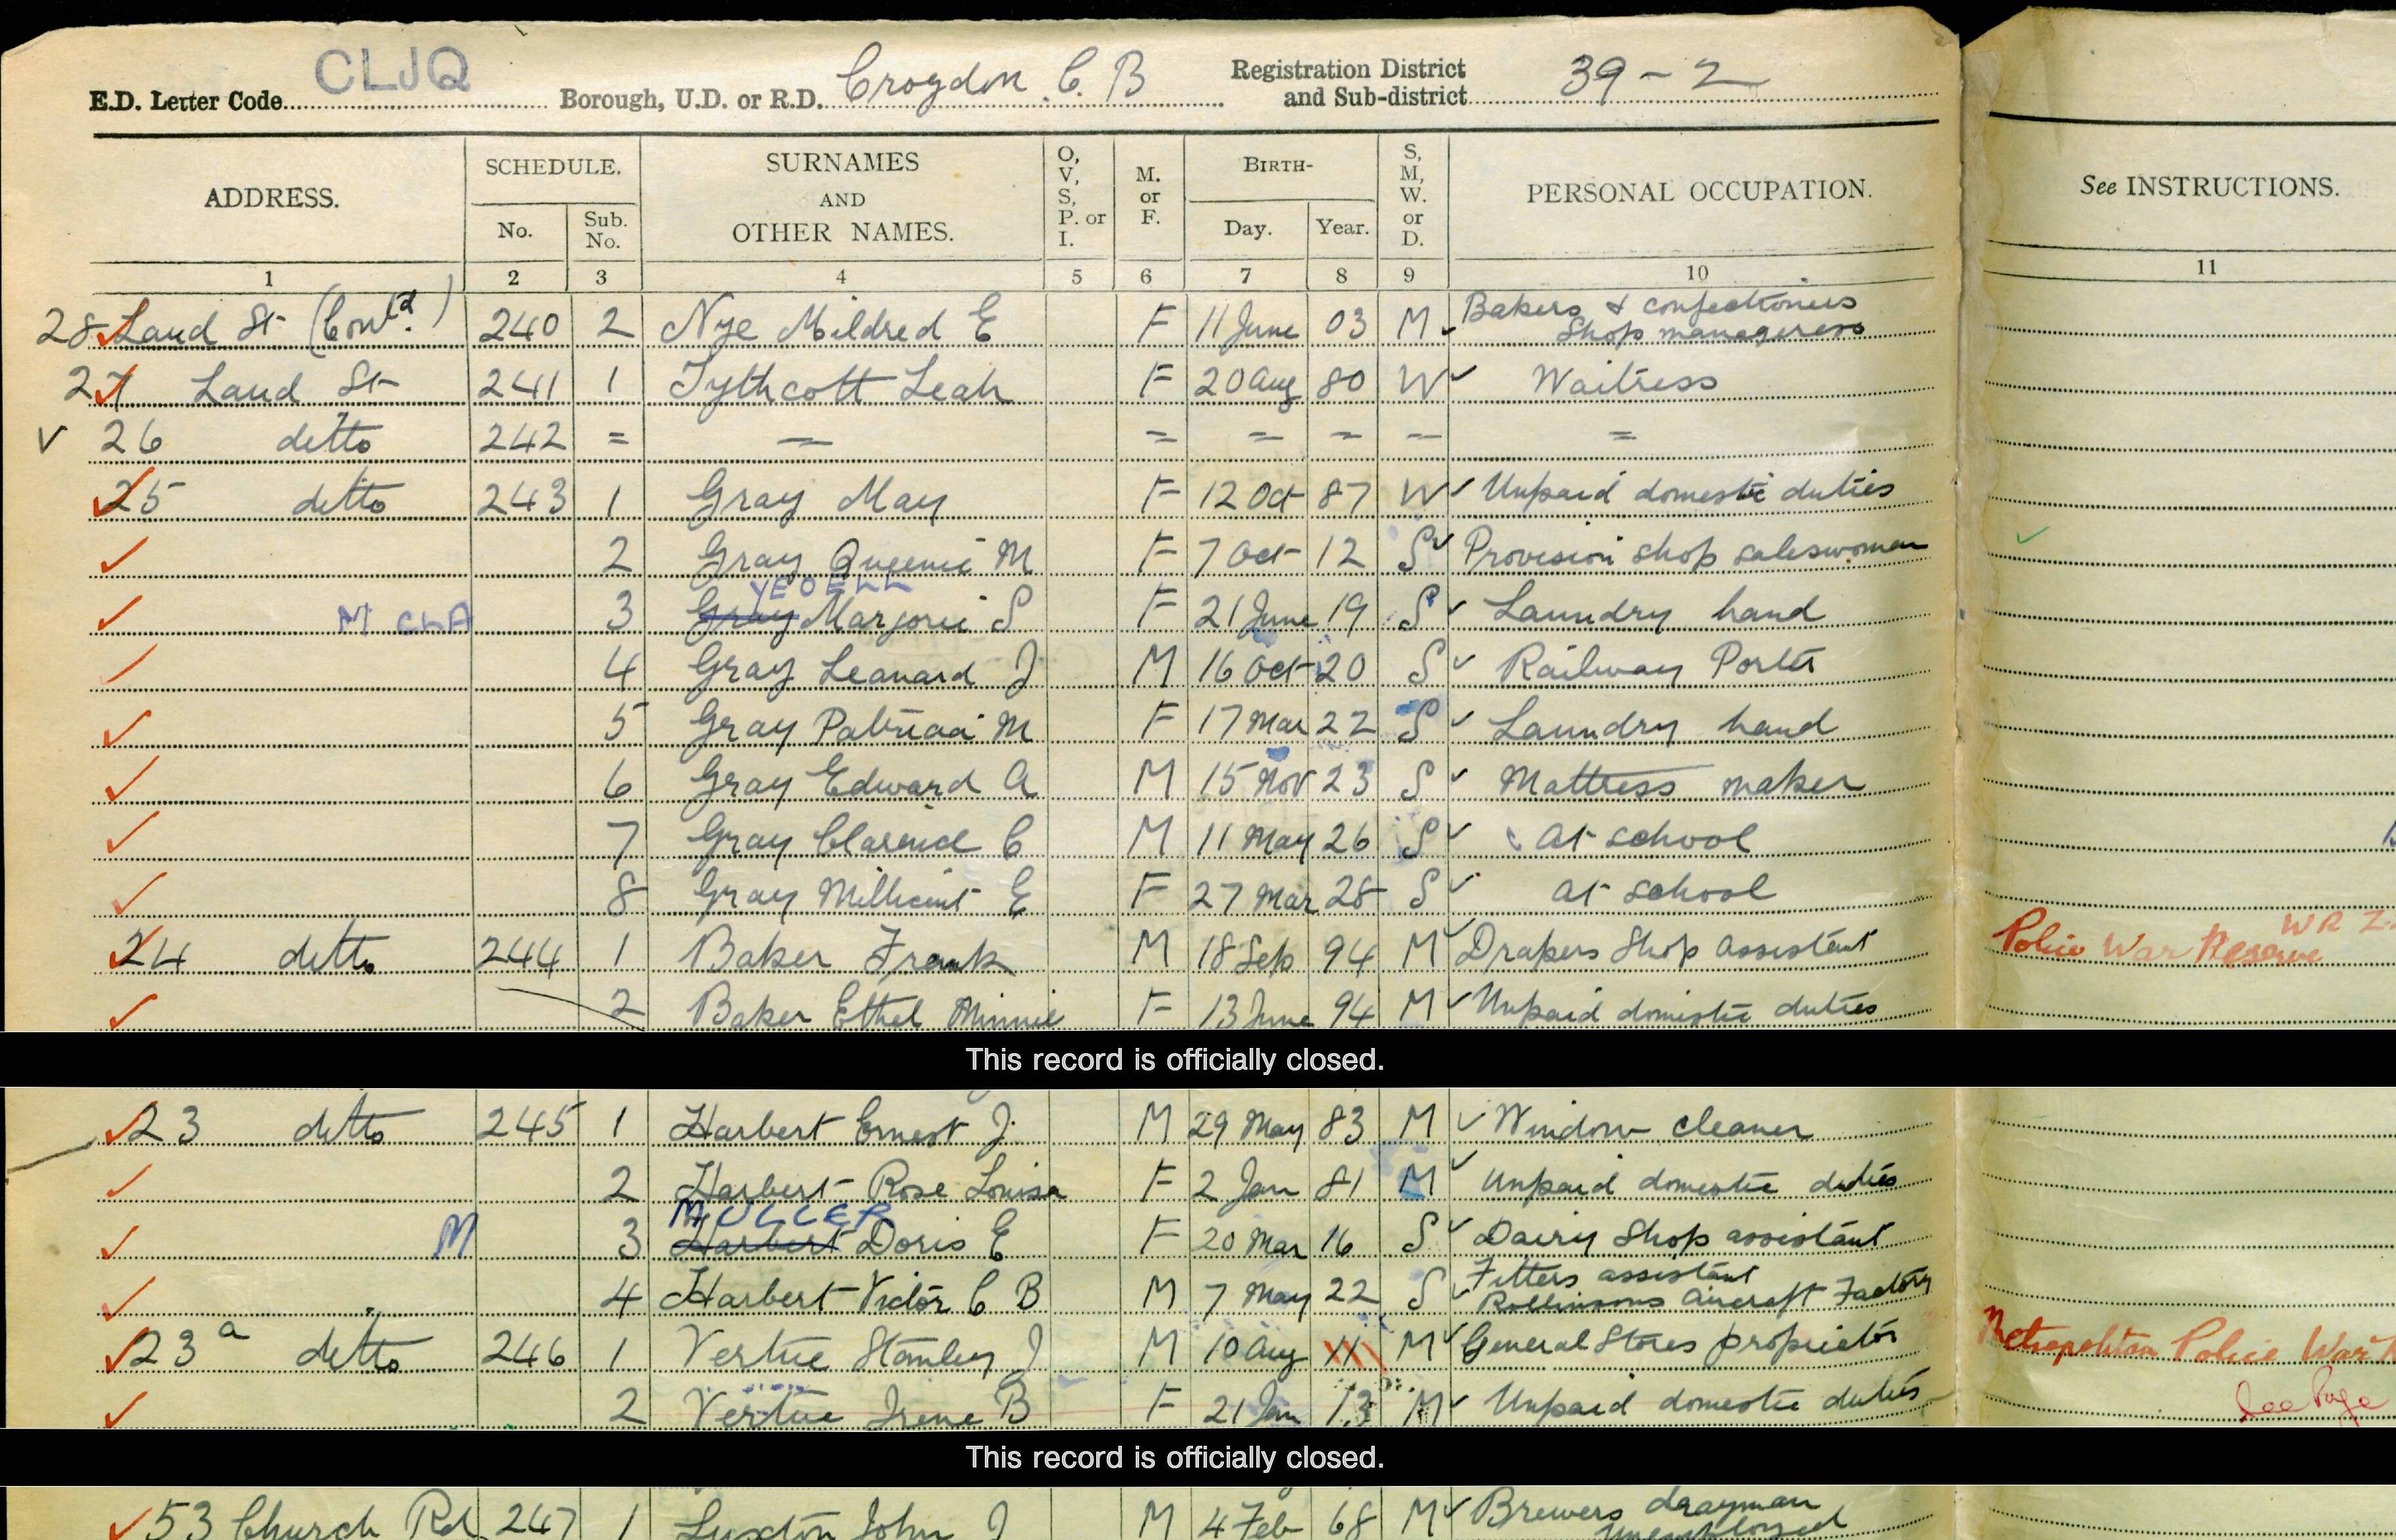 E.D. Letter Code CLJQ Borough, U.D. or R.D. Croydon C. B Registration District and Sub-district 39-2
ADDRESS. SCHEDULE. SURNAMES AND OTHER NAMES. O, V, S, P. or I. M. or F. BIRTH- S, M, W. or D. PERSONAL OCCUPATION. See INSTRUCTIONS.
No. Sub. No. Day. Year.
1 2 3 4 5 6 7 8 9 10 11
28 Laud St (Contd.) 240 2 Nye Mildred E F 11 June 03 M Bakers & confectioners
Shop manageress
27 Laud St 241 1 Tythcott Leah F 20 Aug 80 W Waitress
26 ditto 242 = = = = = = =
25 ditto 243 1 Gray May F 12 Oct 87 W Unpaid domestic duties
2 Gray Queenie M F 7 Oct 12 S Provision shop saleswoman
YEOELL
M CLA 3 Gray Marjorie S F 21 June 19 S Laundry hand
4 Gray Leanard J M 16 Oct 20 S Railway Porter
5 Gray Patricia M F 17 Mar 22 S Laundry hand
6 Gray Edward A M 15 Nov 23 S Mattress maker
7 Gray Clarence C M 11 May 26 S At school
8 Gray Millicent E F 27 Mar 28 S at school
24 ditto 244 1 Baker Frank M 18 Sep 94 M Drapers Shop assistant Police War Reserve WR
2 Baker Ethel Minnie F 13 June 94 M Unpaid domestic duties
This record is officially closed.
23 ditto 245 1 Harbert Ernest J. M 29 May 83 M Window cleaner
2 Harbert Rose Louisa F 2 Jan 81 M Unpaid domestic duties
MULLER
M 3 Harbert Doris E F 20 Mar 16 S Dairy Shop assistant
4 Harbert Victor C B M 7 May 22 S Fitters assistant
Rollinsons Aircraft Factory
23a ditto 246 1 Vertue Stanley J M 10 Aug 11 M General Stores proprietor Metropolitan Police War
2 Vertue Irene B F 21 Jan 13 M Unpaid domestic duties See Page
This record is officially closed.
53 Church Rd 247 1 Luxton John J M 4 Feb 68 M Brewers drayman
Unemployed